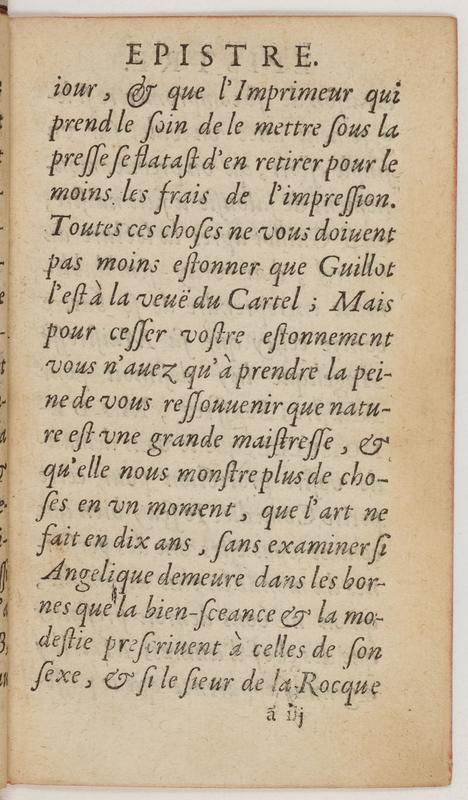 EPISTRE.
iour, & que l'Imprimeur qui
prend le ſoin de le mettre ſous la
preſſe ſe flataſt d'en retirer pour le
moins les frais de l'impreſſion.
Toutes ces choſes ne vous doiuent
pas moins eſtonner que Guillot
l'eſt à la veuë du Cartel ; Mais
pour ceſſer voſtre eſtonnement
vous n'auez qu'à prendre la pei-
ne de vous reſſouuenir que natu-
re eſt vne grande maiſtreſſe, &
qu'elle nous monſtre plus de cho-
ſes en vn moment, que l'art ne
fait en dix ans, ſans examiner ſi
Angelique demeure dans les bor-
nes que la bien-ſceance & la mo-
deſtie preſcriuent à celles de ſon
ſexe, & ſi le ſieur de la Rocque
ã iij